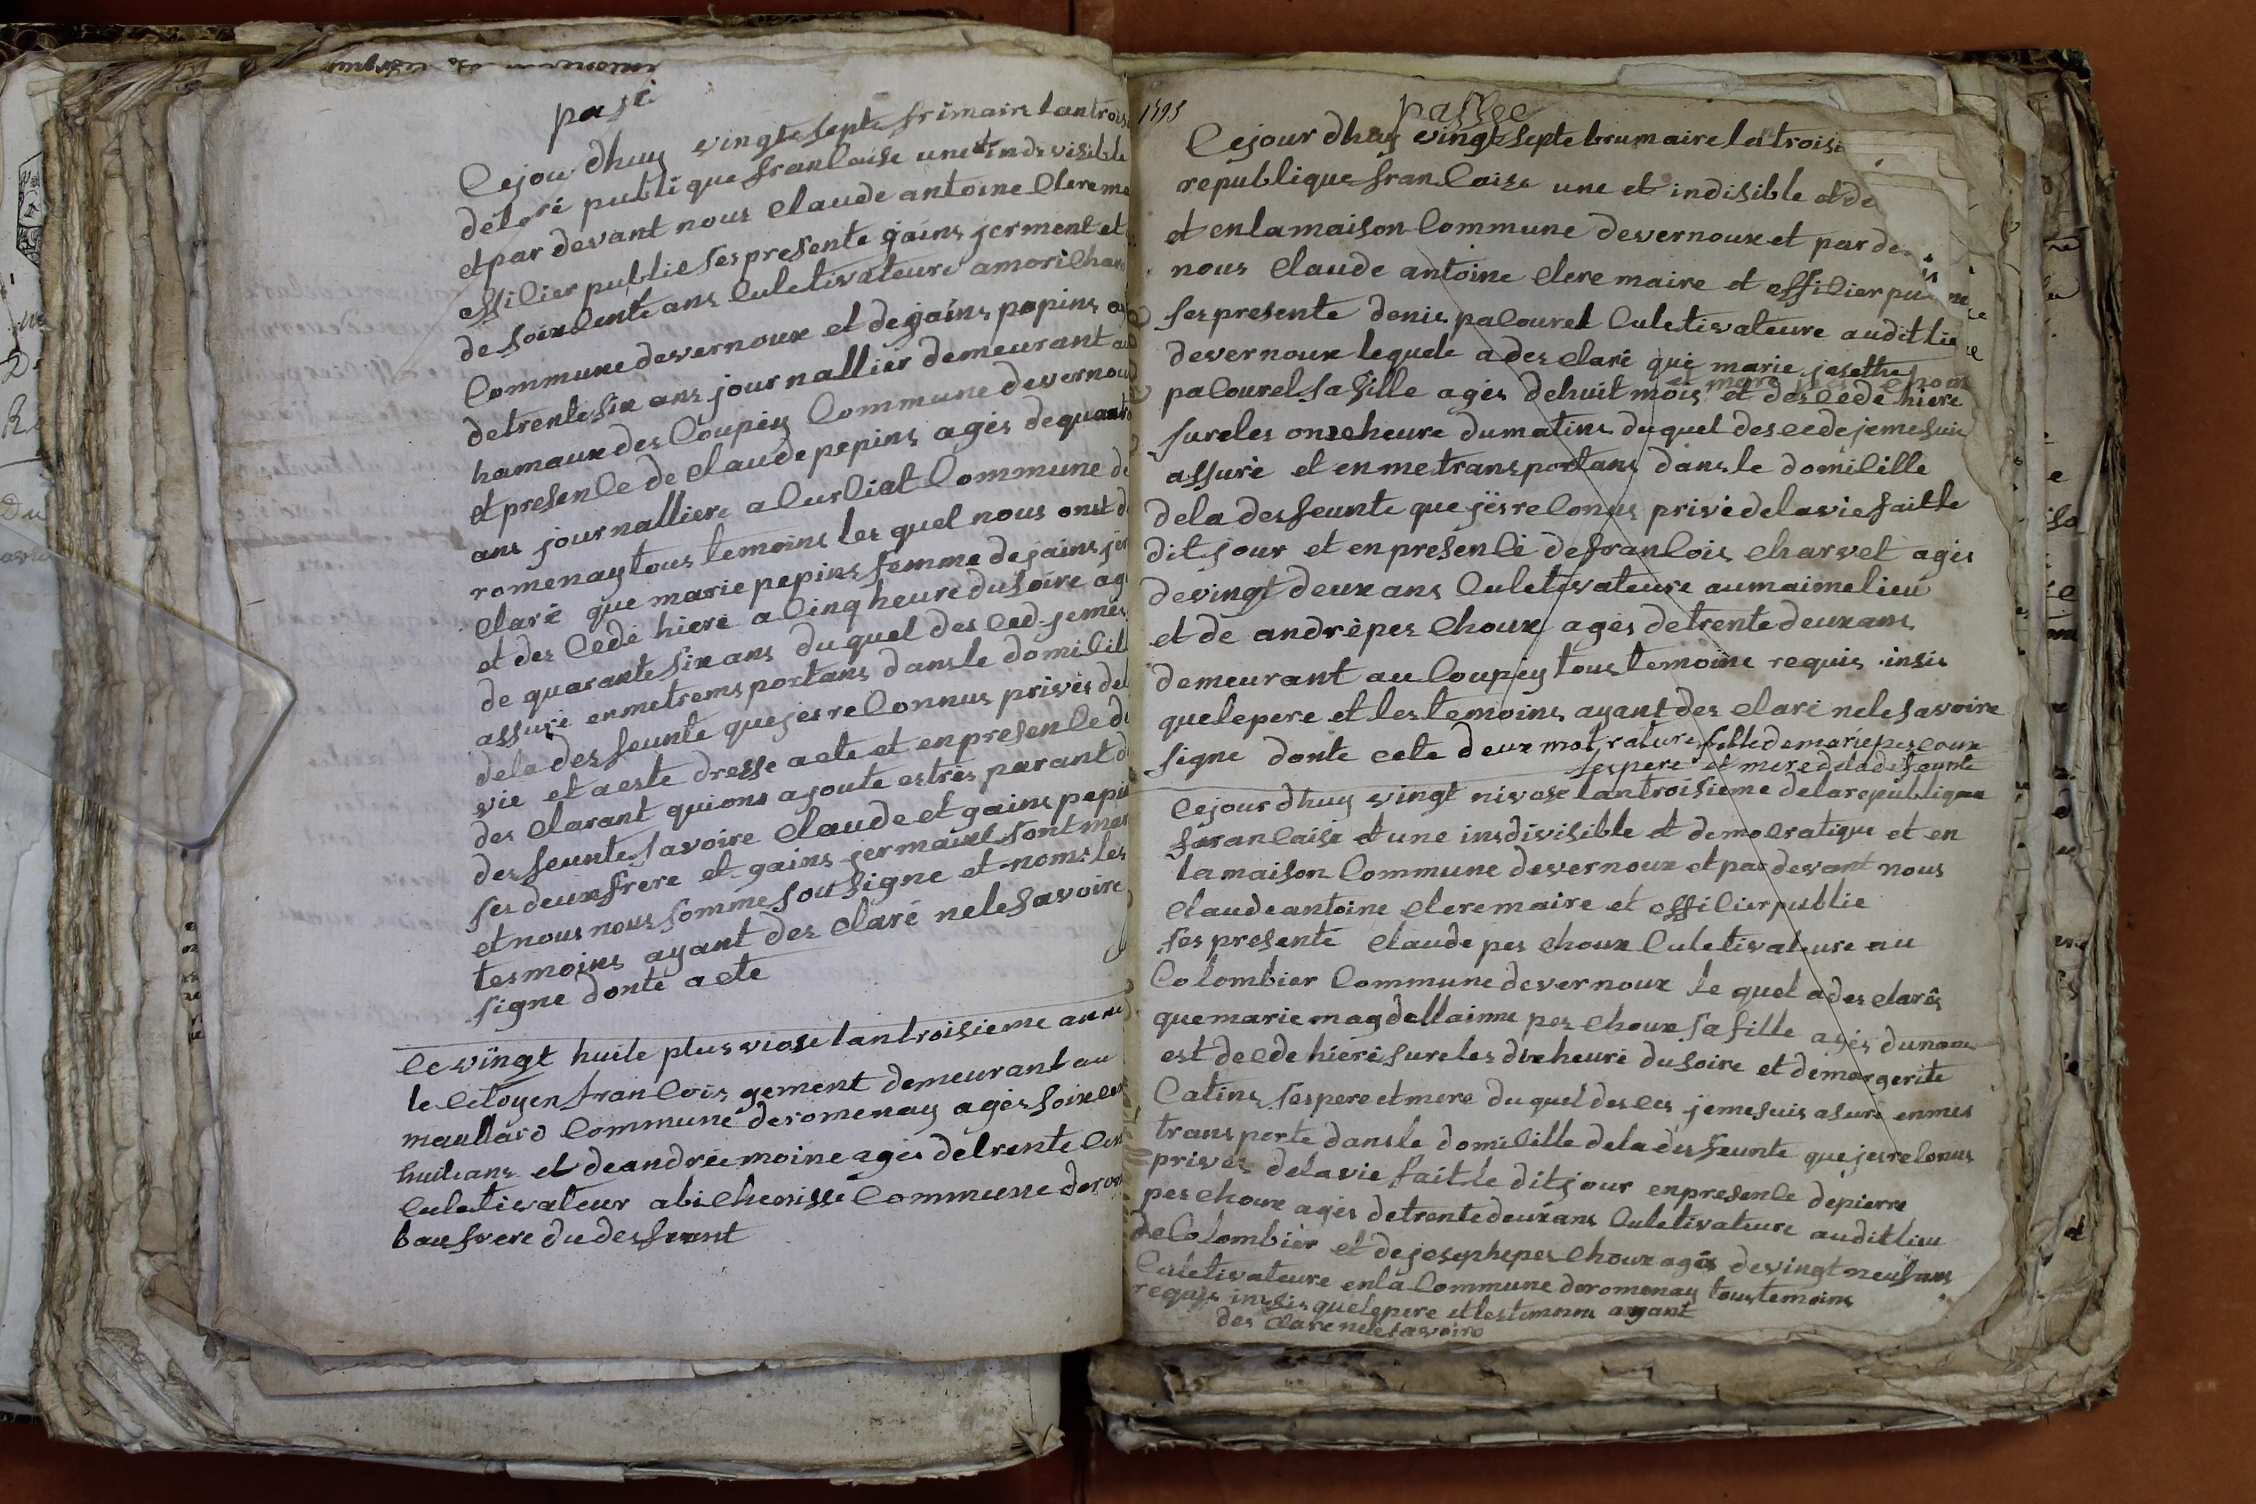 pasé
Cejou dhuy vingte septe frimaire lantrois
delaré publique francaise une et indevisible
et par devant nous Claude antoine Clere
officier publie ses presente gains jerment et
de soixcente ans Culetivateure
Commune devernoux et de gains pepins
detrente six ans journallier demeurant
hamaux des Coupéy Commune devernou
et presence de Claude pepins agés de
ans journalliere a Curliat Commune de
romenay tous temoins les quel nous onst
Claré que marie pepins femme de jains
et des Cedé hiere a Cinq heure du soire
de quarante six ans du quel des Ced
assuré enmetrensportans dansle
dela des feunte que jes reConnus privés
vie et a este dresse acte et enpresence
des Clarant quions ajoute estres parant
des feunte savoire Claude et gains
ses deux frere et gains jermaint sont
et nous nous somme sousigne et les
tesmoins ayant des Claré nele savoire
signe donte acte
Ce vingt huite plus viose lantroisieme
le Citoyen francois gement demeurant au
maullard Commune deromenay agés
huit ans et deandrée moine agés detrente
Culetivateur abicherisse Commune
baufrere du des feunt
1795
passee
Cejour dhuy vingt septe brumaire
republique francaize une et indisible et
et enlamaison Commune devernoux et par
nous Claude antoine Clere maire et officier
ses presente denis paCouret Culetivateure audit
devernoux lequele a des Claré que marie josethe
paCouret sa fille agés dehuit mois et des Cede hiere
sureles onze heure dumatins duquel des Cede jemesuis
assuré et enmetransportans dansle domicille
dela desfeunte que jésreConus privé delavie faitle
dit jour et enpresence defrancois Charvet agés
devingt deux ans Culetivateure aumaimelieu
et de andrépes Choux agés detrente deuxans
demeurant au Coupéy tous temoins requis insis
quelepere et les temoins ayant des Claré nele savoire
signe donte acte deux mot rature
ses pere et mere deladesfeunte
Cejour dhuy vingt nivose lantroisieme delarepublique
farancaise et une insdivisible et democratique et en
lamaison Commune devernoux et par devant nous
Claude antoine Clere maire et officier publie
ses presenté Claude pes Choux Culetivateure au
Colombier Commune devernoux le quel a des Clarés
quemarie magdellainne pes Choux sa fille agés
est deCde hiére sureles dix heure dusoire et demargerite
Catins sespere et mere duquel des jemesuis asuré enmes
trans porte dansle domicille dela des feunte que jesreConus
privés delavie fait le dit jour enpresence de pierre
pes Choux agés detrente deux ans Culetivateure auditlieu
deColombier et dejosephepes Choux agés devingt neuf ans
Culetivateure enla Commune deromenay toustemoins
requis insis quelepere et les ayant
des Clare nele savoire